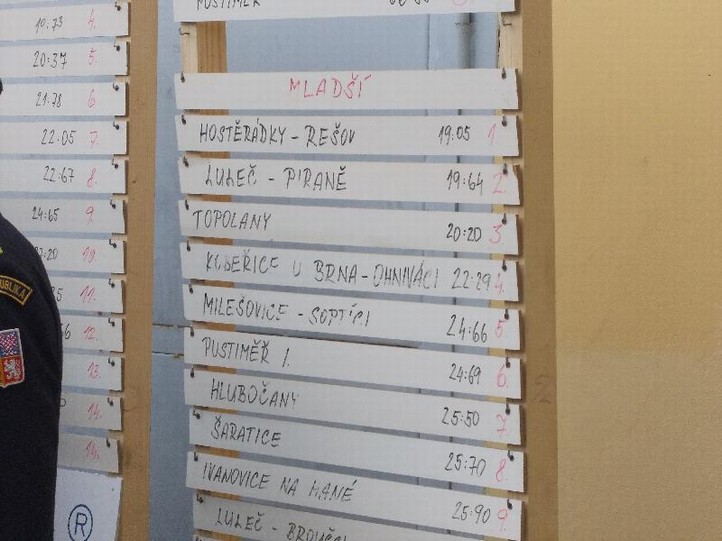 19:73 4.
20:37 5.
21:78 6
22:05 7.
22:67 8.
24:65 9.
10.
11.
12.
13.
14.
UBLIKA
R
MLADŠÍ
HOSTĚRÁDKY - REŠOV 19.05 1
LULEČ - PIRANĚ 19:64 2.
TOPOLANY 20:20 3.
KOBEŘICE U BRNA - OHNIVÁCI 22:29 4.
MILEŠOVICE - SOPTÍCI 24:66 5
PUSTIMĚŘ 1. 24:69 6.
HLUBOČANY 25:50 7
ŠARATICE 25:70 8
IVANOVICE NA HANÉ 25:90 9.
LULEČ -